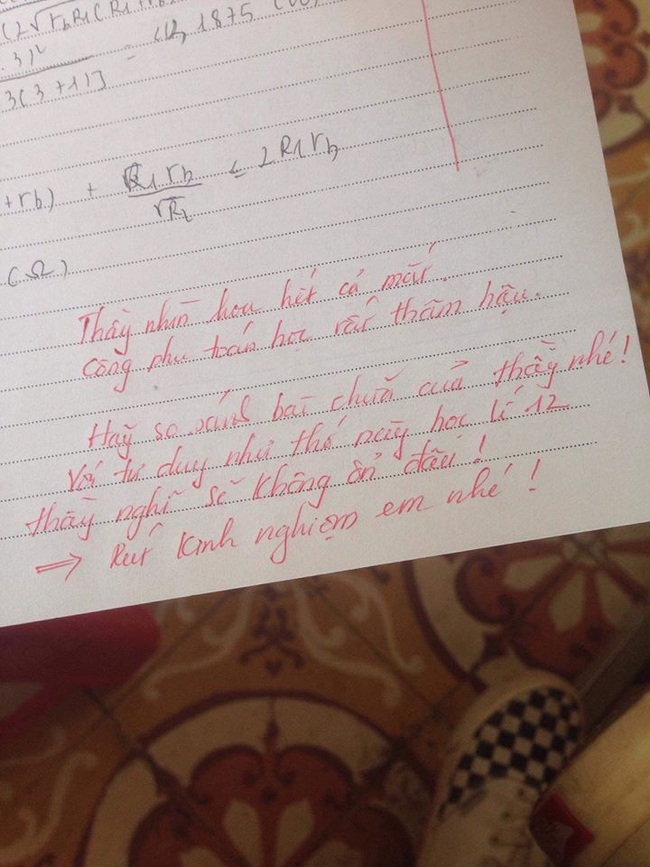 (2√rbR1(R1+rb
3)² = 12,1875 (W)
3(3+11)
+rb) + R1rb/√R1 ≤ 2R1rb
(Ω)
Thầy nhìn hoa hết cả mắt.
Công phu toán học rất thâm hậu.
Hãy so sánh bài chữa của thầy nhé!
Với tư duy như thế này học lí 12
thầy nghĩ sẽ không ổn đâu!
⇒ Rút kinh nghiệm em nhé!